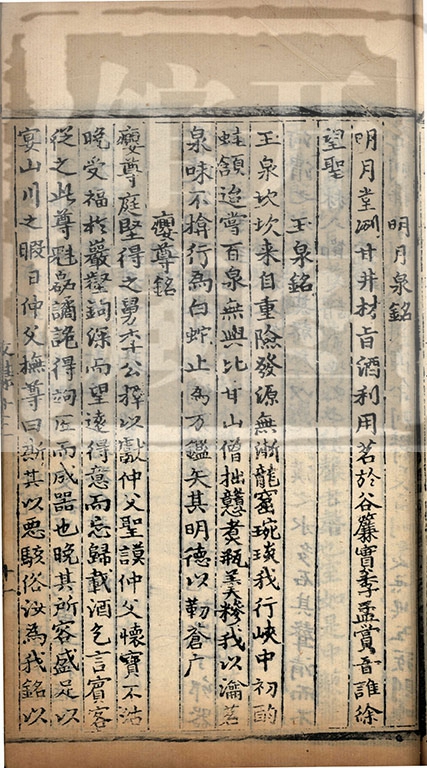 明月泉銘
明月堂㴱甘井杜旨酒利用茗於谷簾實季孟賞音誰徐
望聖
玉泉銘
玉泉坎坎来自重險發源無漸龍窒琬琰我行峽中初酌
蛙頷迨嘗百泉無與比甘山僧拙戇煮瓶羙糝我以瀹茗
泉味不揜行為白蛇止為万鑑矢其明德以勒蒼广
癭尊銘
癭尊庭堅得之舅李公擇以獻仲父聖謨仲父懷寶不沽
晚受福於巖壑鉤深而望遠得意而忘歸載酒乞言賓客
從之此尊魁磊譎詭得竘匠而成器也晚其所容盛足以
宴山川之暇日仲父撫尊曰斯其以悪駭俗汝為我銘以